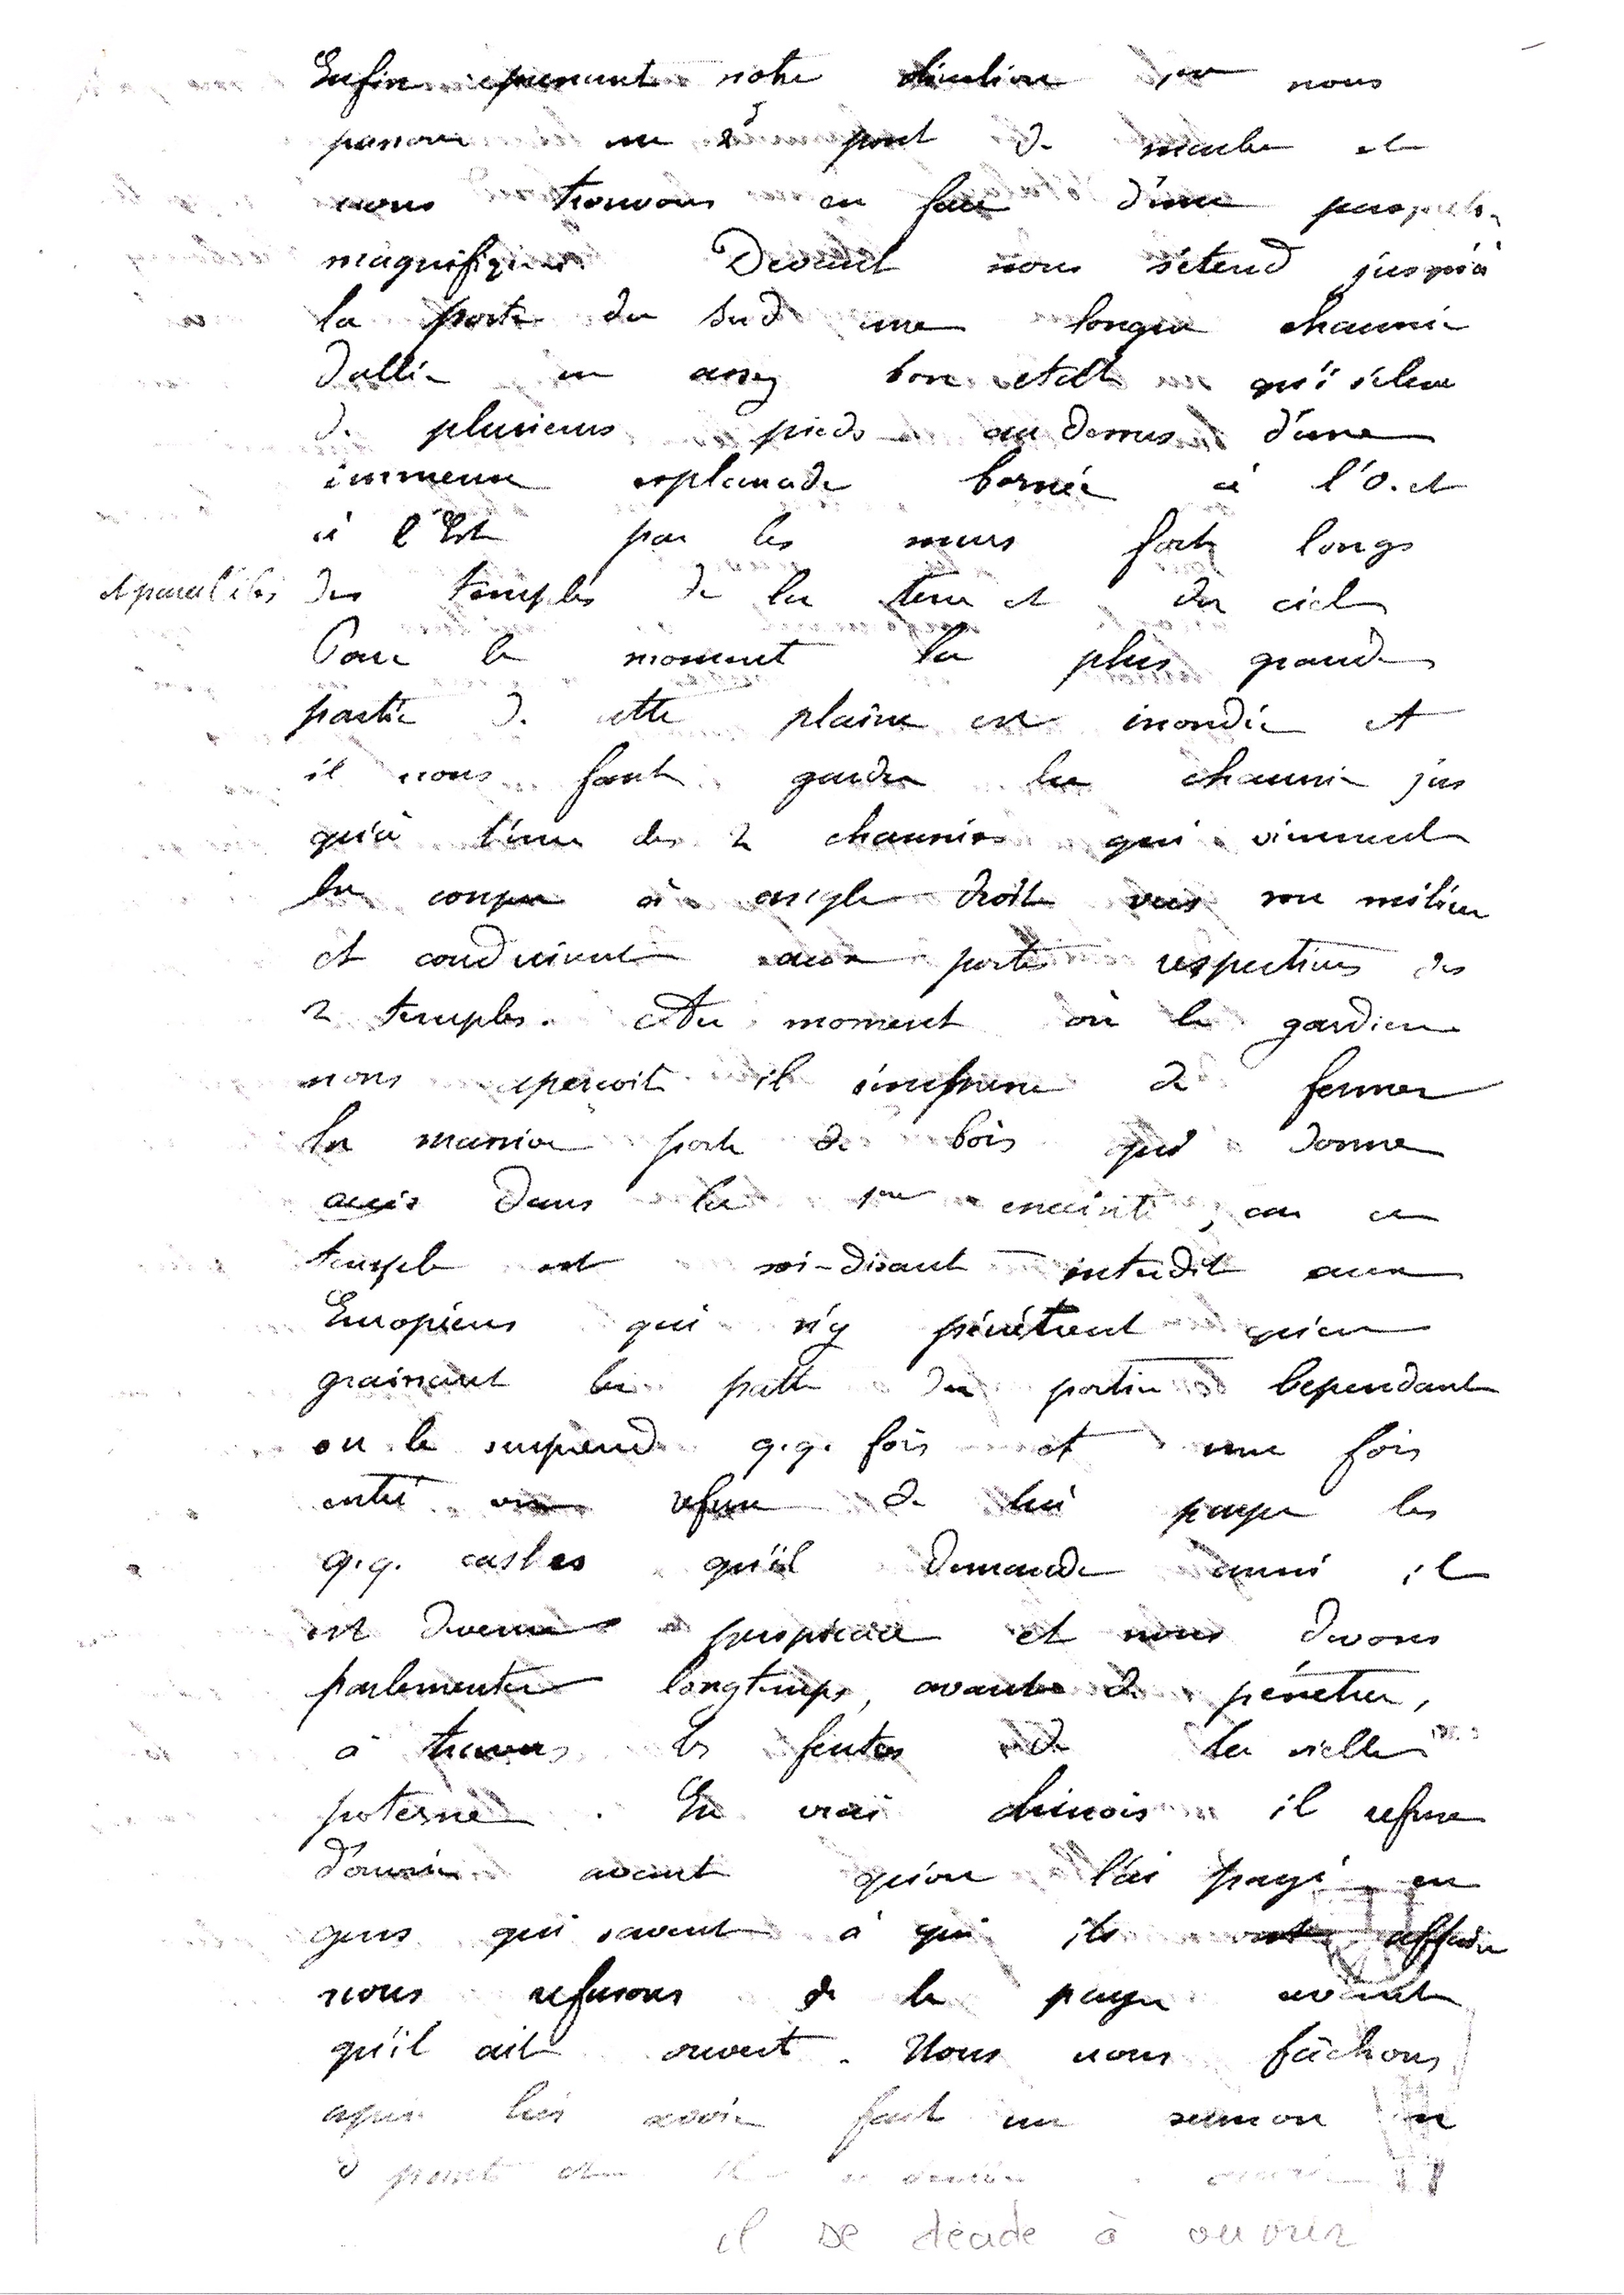 Enfin prenant notre direction nous
passons un 2e pont de marbre et
nous trouvons en face d'une perspective
magnifique. Devant nous s'étend jusqu'à
la porte du Sud une longue chaussée
dallée en assez bon état qui s'élève
de plusieurs pieds au dessus d'une
immense esplanade bornée à l'O. et
à l'Est par les murs forts longs
et parallèles des temples de la terre et du ciel
Pour le moment la plus grande
partie de cette plaine est inondée et
il nous faut garder la chaussée jus
qu'à l'une des 2 chaussées qui viennent
la couper à angle droit vers son milieu
et conduisent aux portes respectives des
2 temples. Au moment où le gardien
nous aperçoit il s'empresse de fermer
la massive porte de bois qui donne
accès dans la 1ère enceinte, car ce
temple est soi-disant interdit aux
Européens qui n'y pénètrent qu'en
graissant la patte du portier Cependant
on le surprend q.q. fois et une fois
entré on refuse de lui payer les
q.q. cashes qu'il demande aussi il
est devenu perspicace et nous devons
parlementer longtemps, avant de pénétrer,
à travers les fentes de la vielle
poterne. En vrai chinois il refuse
d'ouvrir avant qu'on l'ai payé en
gens qui savent à qui ils ont affaire
nous refusons de le payer avant
qu'il ait ouvert. Nous nous fâchons
après lui avoir fait un sermon en
3 points
il se décide à ouvrir